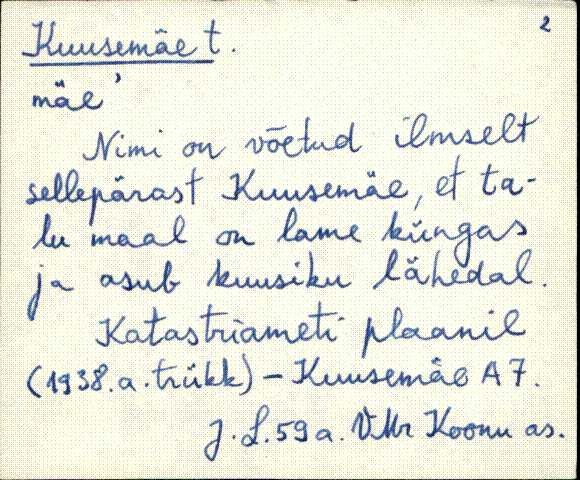 Kuusemäe t. 2
mäe'
Nimi on võetud ilmselt
sellepärast Kuusemäe, et ta-
lu maal on lame küngas
ja asub kuusiku lähedal.
Katastriameti plaanil
(1938.a.trükk) – Kuusemäe A 7.
J. L. 59 a. VMr Koonu as.